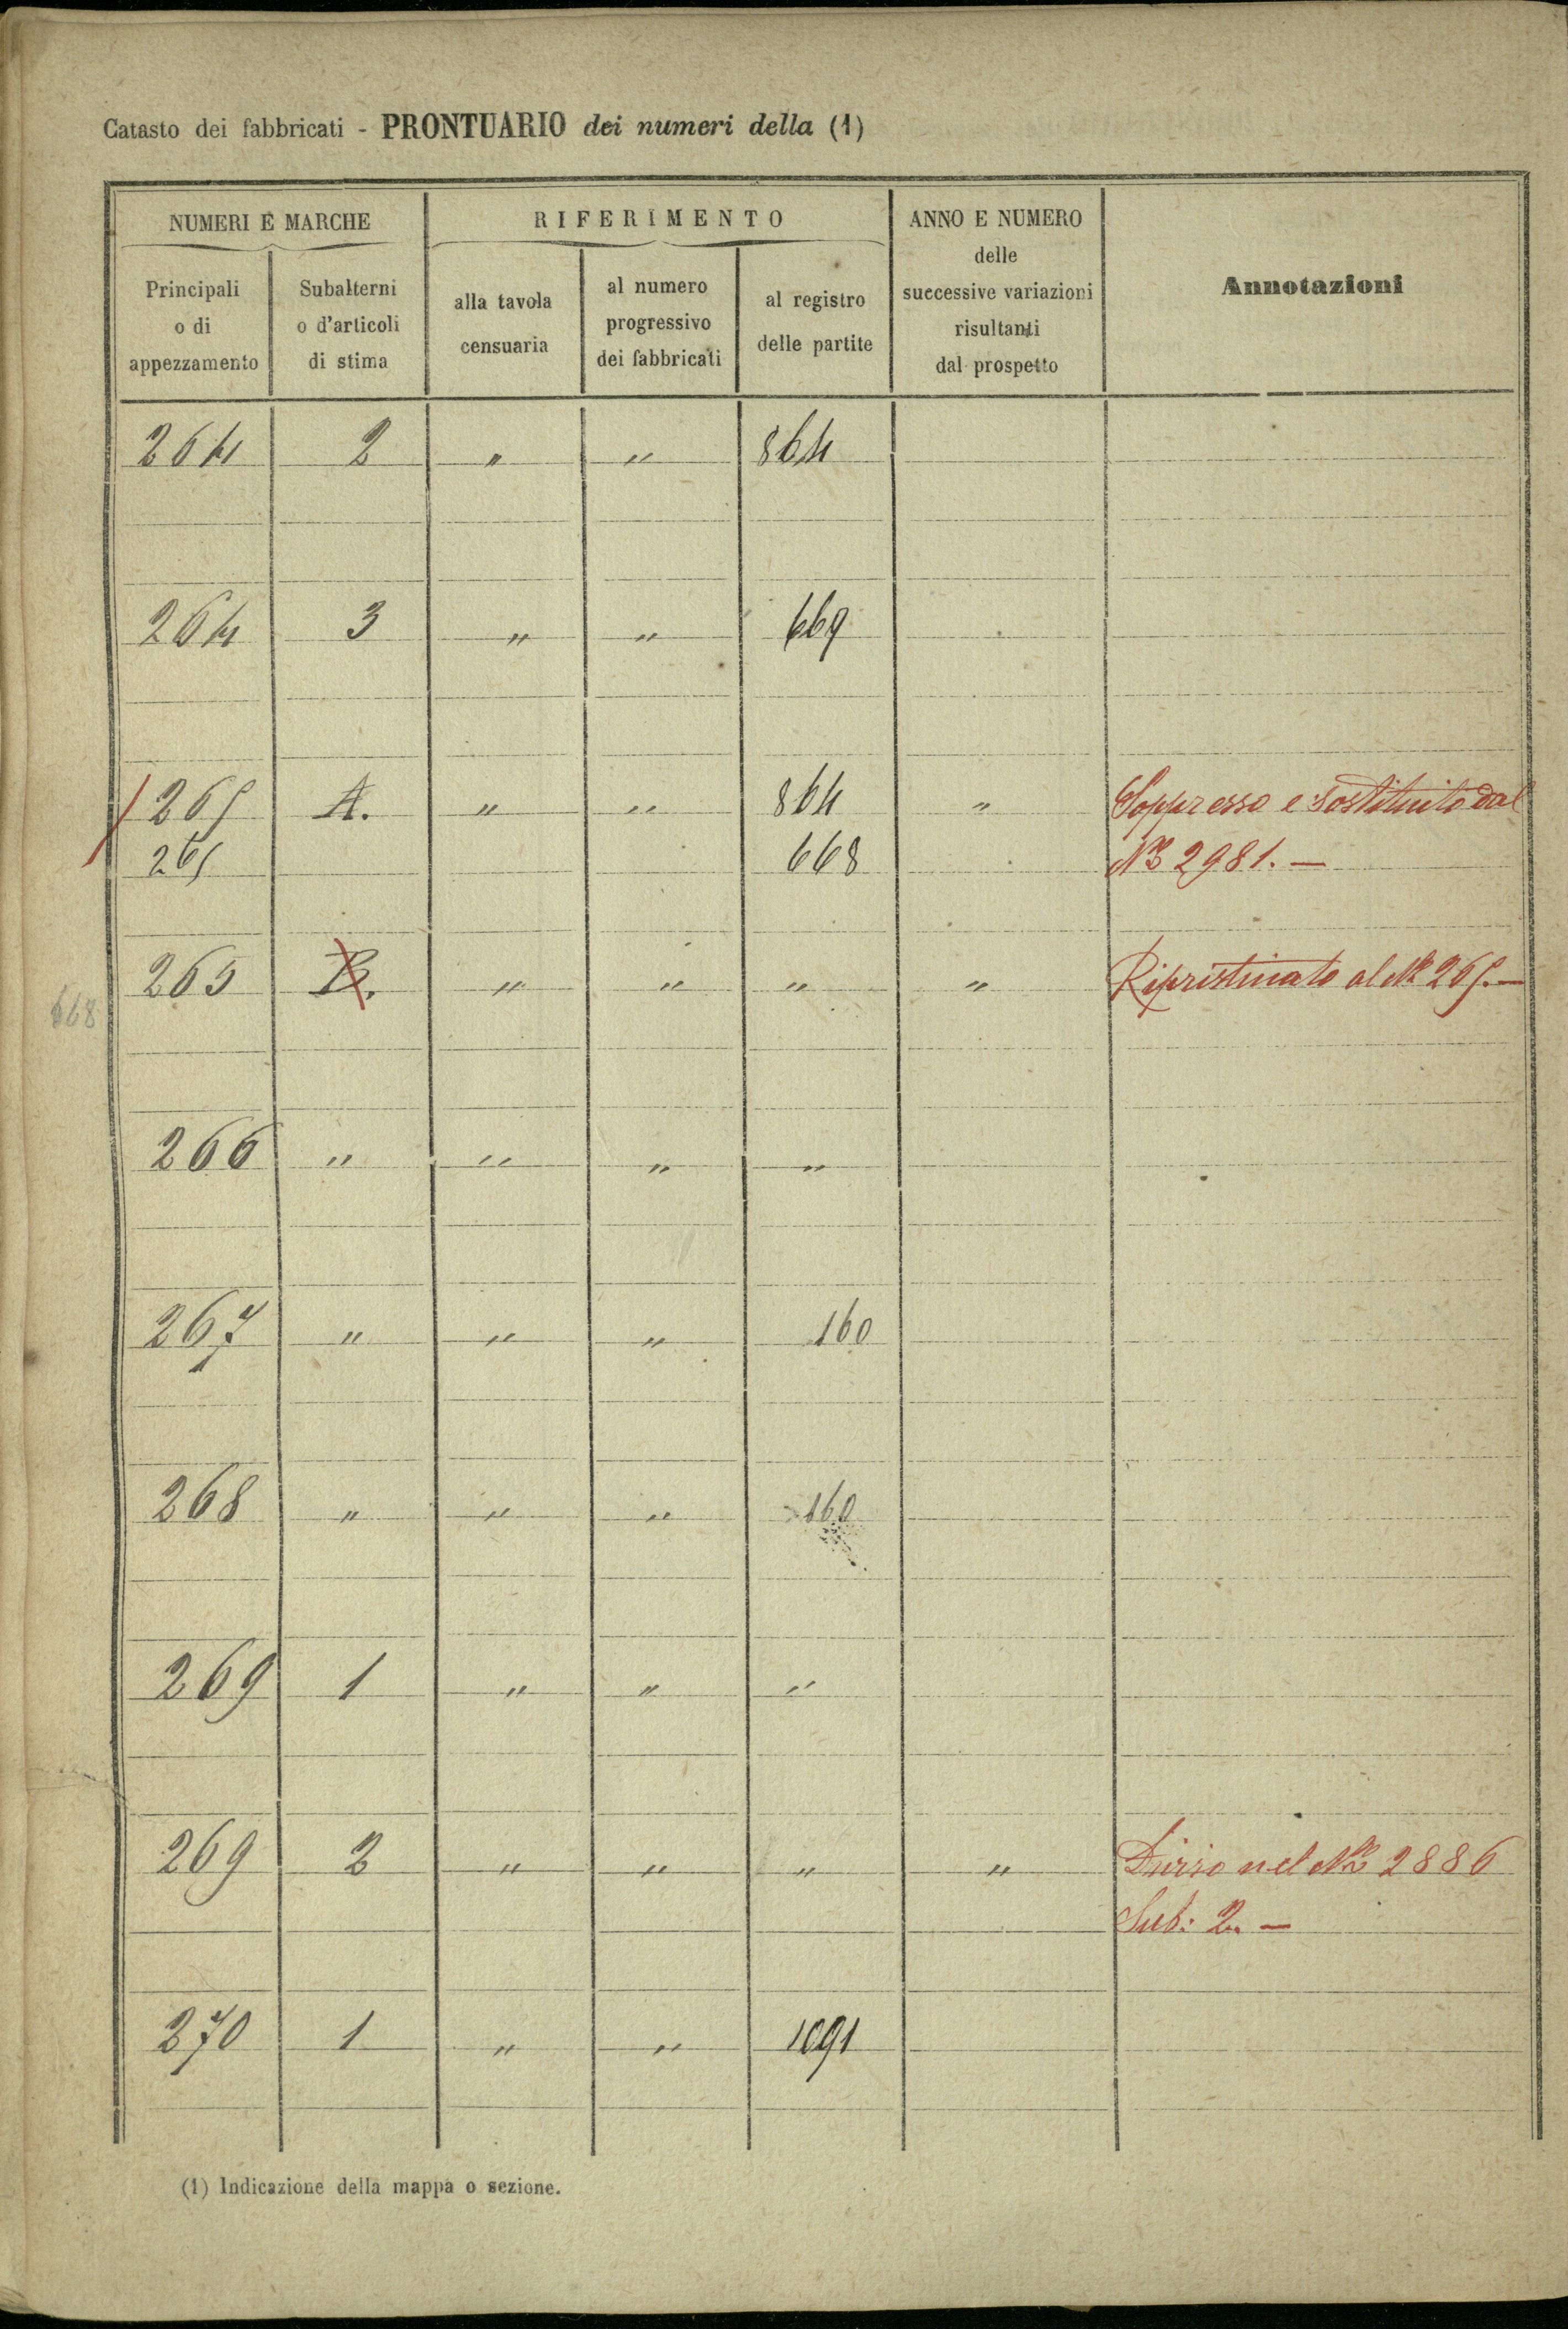 Catasto dei fabbricati - PRONTUARIO dei numeri della (1)
NUMERI E MARCHE
RIFERIMENTO
ANNO E NUMERO
delle
successive variazioni
risultanti
dal prospetto
Annotazioni
Principali
o di
appezzamento
Subalterni
o d'articoli
di stima
alla tavola
censuaria
al numero
progressivo
dei fabbricati
al registro
delle partite
264 2 " " 864
264 3 " " 669
265 A. " " 864 " Soppresso e sostituito dal
265 668 No 2981. —
265 B. " " " " Ripristinato al No 265. —
668
266 " " " "
267 " " " 160
268 " " " 160
269 1 " " "
269 2 " " " " Diviso nel No 2886
Sub: 2. —
270 1 " " 1091
(1) Indicazione della mappa o sezione.